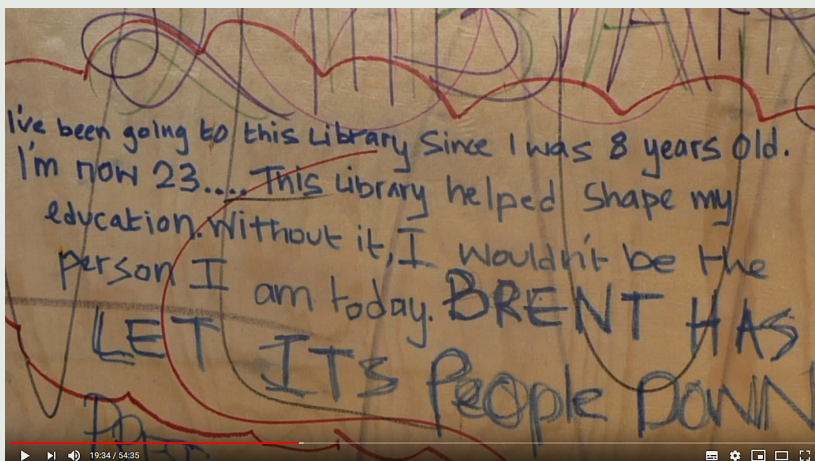 I've been going to this Library since I was 8 years old.
I'm now 23.... This Library helped shape my
education. Without it, I wouldn't be the
person I am today. BRENT HAS
LET ITS People DOWN
19:34 / 54:35